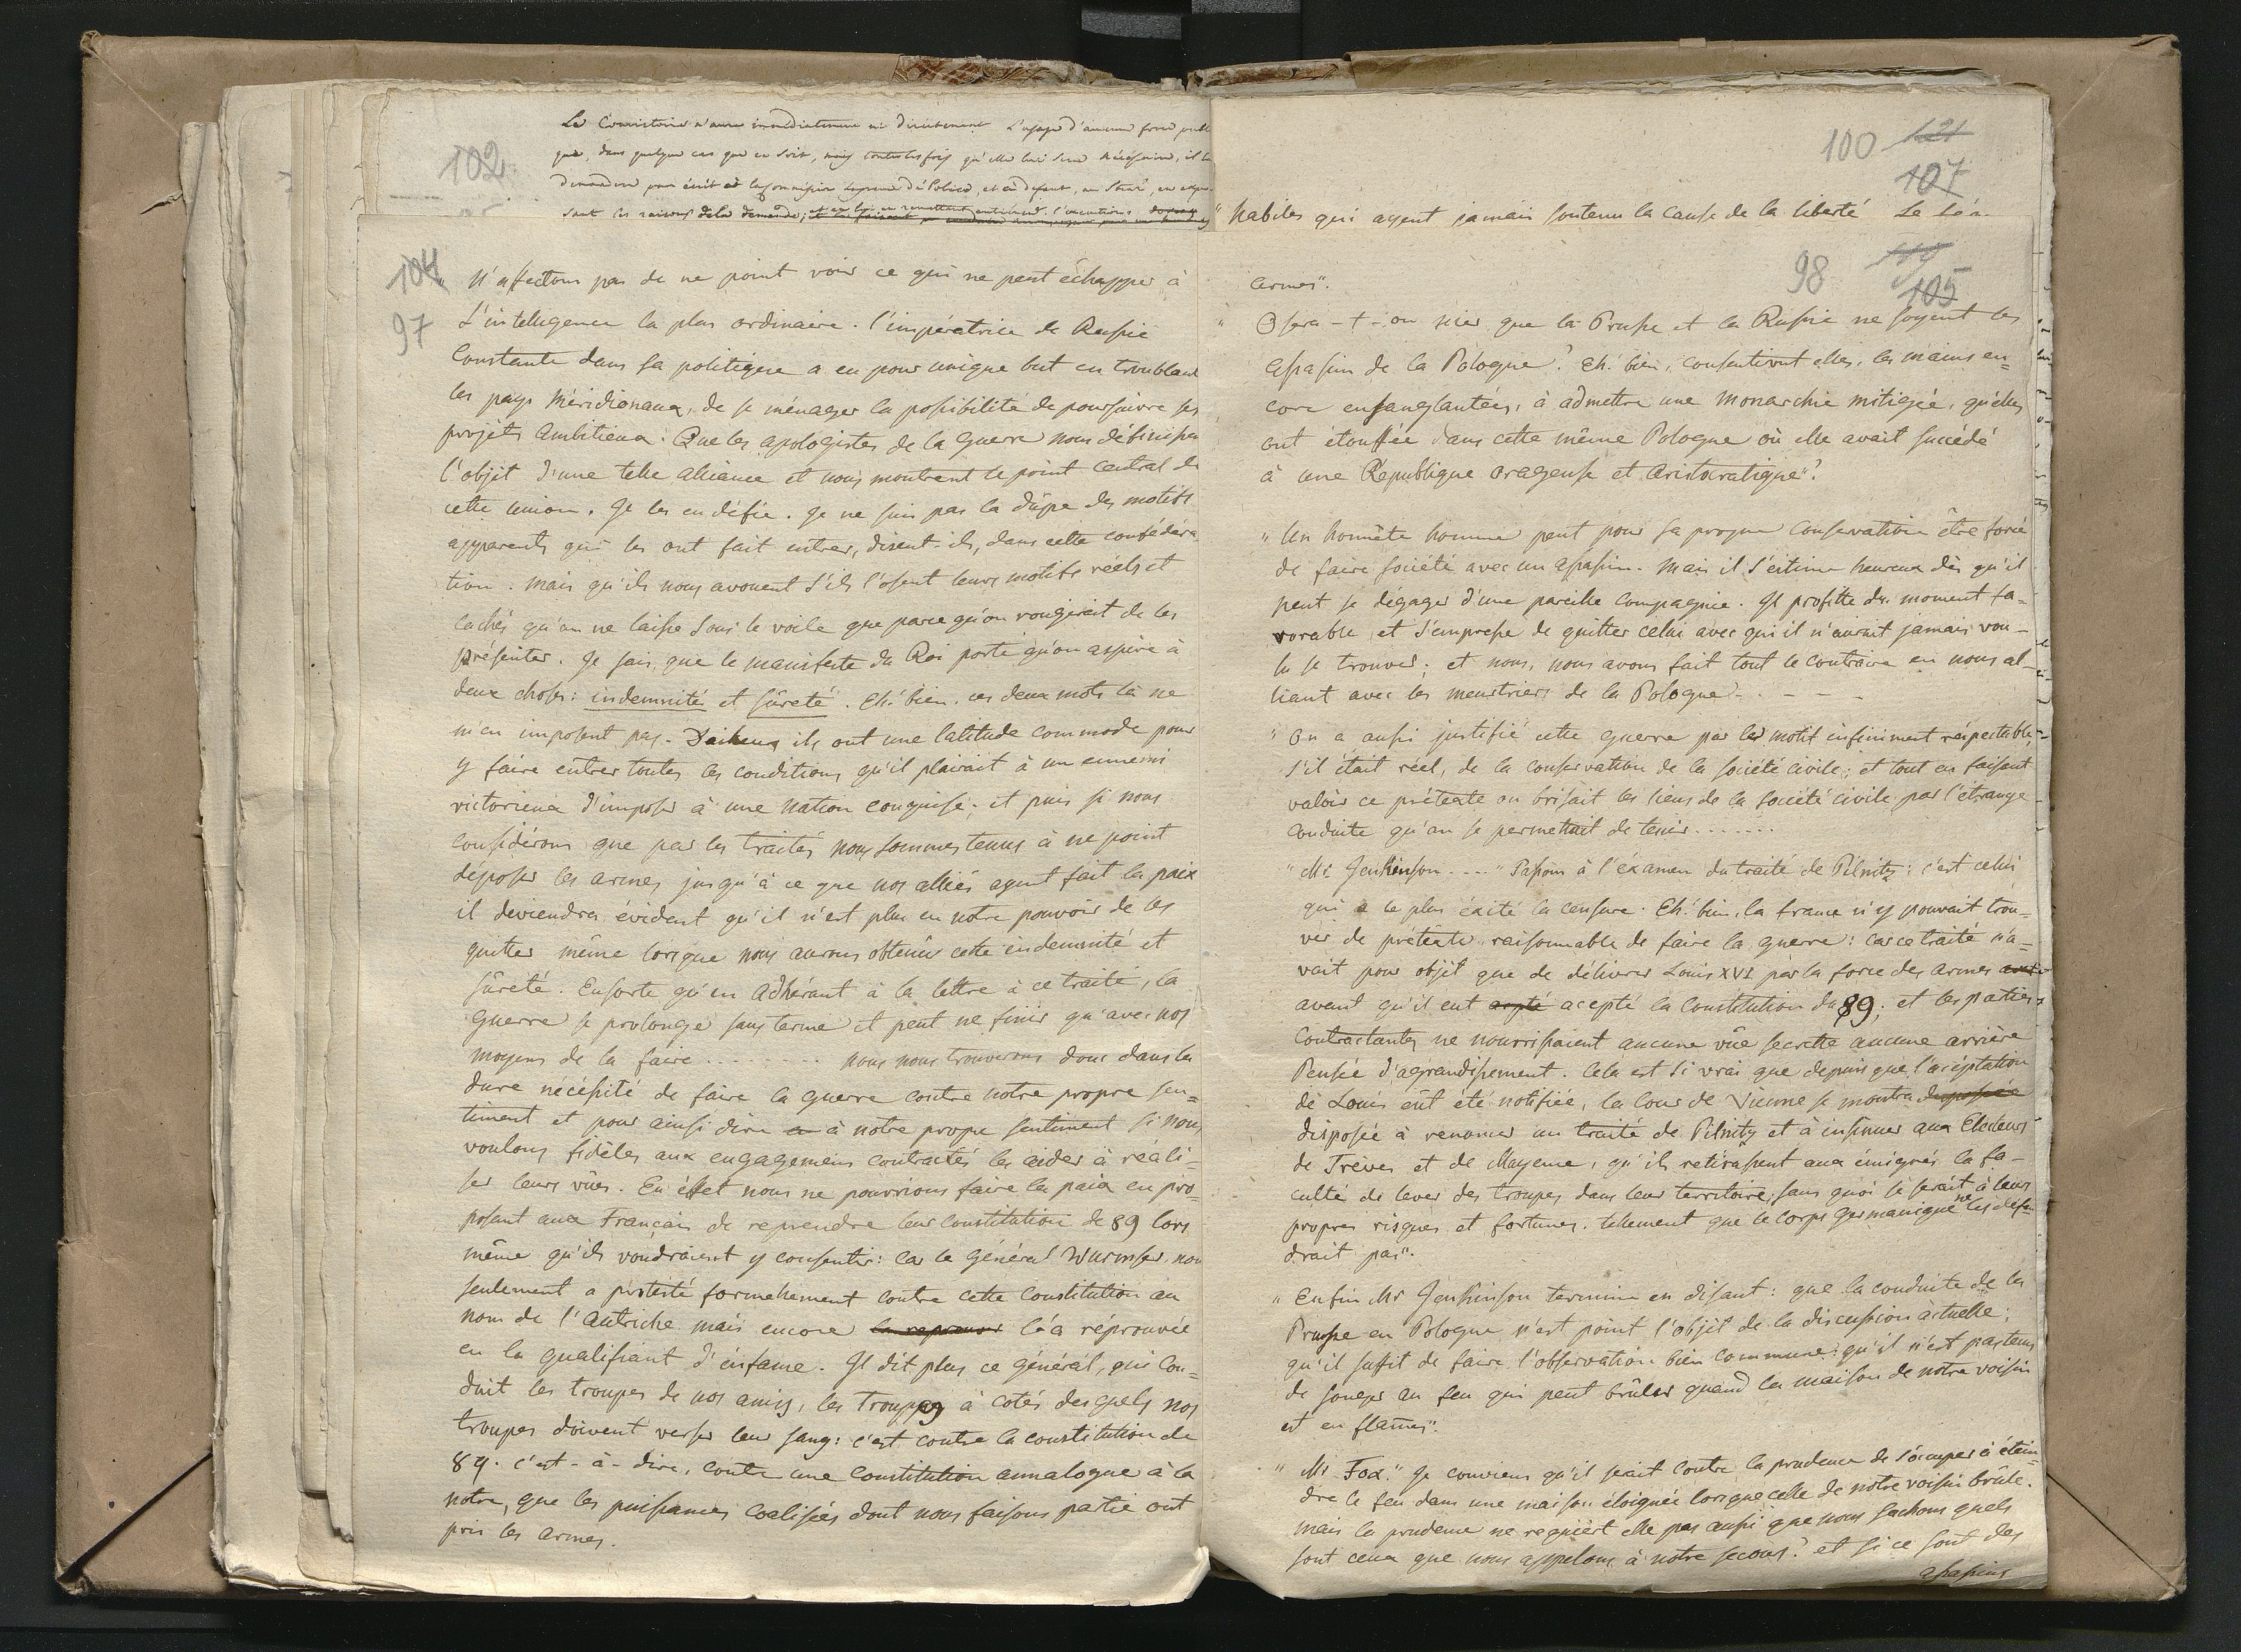 Le Consistoire n'aura immédiatement ni directement l'usage d'aucune force publi
que, dans quelque cas que ce soit, mais toutes les fois qu'elle lui sera nécessaire, il la
demandera par écrit à la Commission Supreme de Police, et à défaut, au
sant les raisons de la demande;
102
104
97
N'affectons pas de ne point voir ce qui ne peut échapper à
L'intelligence la plus ordinaire. l'impératrice de Russie
Constante dans sa politique a eu pour unique but en troublant
les pays Méridionaux, de se ménager la possibilité de poursuivre ses
projets Ambitieux. Que les apologistes de la guerre nous définissen
l'objet d'une telle alliance et nous montrent le point Central de
cette union. Je les en défie. Je ne suis pas la dûpe des motifs
apparents qui les ont fait entrer, disent-ils, dans cette confédéra
tion. Mais qu'ils nous avouent s'ils l'osent leurs motifs réels et
cachés qu'on ne laisse sous le voile que parce qu'on rougirait de les
présenter. Je sais, que le manifeste du Roi porte qu'on aspire à
deux choses: indemnité et sûreté. Eh! bien, ces deux mots là ne
m'en imposent pas. D'ailleurs ils ont une latitude commode pour
y faire entrer toutes les conditions qu'il plairait à un ennemi
victorieux d'imposer à une Nation conquise; et puis si nous
considérons que par les traités nous sommes tenus à ne point
déposer les armes jusqu'à ce que nos alliés ayent fait la paix
il deviendra évident qu'il n'est plus en notre pouvoir de les
quitter même lorsque nous aurons obtenûs cette indemnité et
sûreté. Ensorte qu'en Adhérant à la lettre à ce traité, la
guerre se prolonge sans terme et peut ne finir qu'avec nos
moyens de la faire ........ nous nous trouverons donc dans la
dure nécéssité de faire la guerre contre notre propre sen=
timent et pour ainsi dire à notre propre sentiment si nous
voulons fidèles aux engagemens contractés les aider à réali=
ser leurs vûes. En éffet nous ne pourrions faire la paix en pro=
posant aux français de reprendre leur constitution de 89 lors
même qu'ils voudraient y consentir: car le Général Wurmser non
seulement a protesté formellement contre cette Constitution au
nom de l'Autriche mais encore la reprouvé l'éa réprouvée
en la qualifiant d'infame. Il dit plus ce général, qui Con=
duit les troupes de nos amis, les troupes à cotés desquels nos
troupes doivent verser leur sang: c'est contre la constitution de
89. c'est-à-dire, contre une Constitution annalogue à la
notre, que les puissances coalisées dont nous faisons partie ont
pris les armes.
100 121
107
" habiles qui ayent jamais soutenu la cause de la liberté
98
105
armes".
" Osera-t-on nier que la Prusse et la Russie ne soyent les
assassins de la Pologne? Eh! bien, consentiront elles, les mains en=
core ensanglantées, à admettre une Monarchie mitigée, qu'elles
ont étouffée dans cette même Pologne où elle avait succédé
à une République orageuse et Aristocratique"?
" Un honnête homme peut pour sa propre conservation être forcé
de faire société avec un assassin. Mais il s'estime heureux dès qu'il
peut se dégager d'une pareille Compagnie. Il profitte du moment fa=
vorable et s'empresse de quitter celui avec qui il n'aurait jamais vou-
lu se trouver; et nous, nous avons fait tout le contraire en nous al-
liant avec les meurtriers de la Pologne. - - -
" On a aussi justifié cette guerre par les motif infiniment réspectable,
s'il était réel, de la conservation de la société civile; et tout en faisant
valoir ce prétexte on brisait les liens de la société civile par l'étrange
conduite qu'on se permettait de tenir.......
" Mr. Jenkinson ...." Passons à l'éxamen du traité de Pilnitz: c'est celui
qui a le plus éxité la censure. Eh! bien, la france n'y pouvait trou=
ver de prétexte raisonnable de faire la guerre: car ce traité n'a=
vait pour objet que de délivrer Louis XVI par la force des armes
avant qu'il eut acepté la Constitution de 89; et les parties
Contractantes ne nourrissaient aucune vûe secrette aucune arrière
Pensée d'agrandissement. Cela est si vrai que depuis que l'acéptation
de Louis eût été notifiée, la Cour de Vienne se montra disposée
disposée à renoncer au traité de Pilnitz et à insinuer aux Electeurs
de Trèves et de Mayence, qu'ils retirassent aux émigrés la fa-
culté de lever des troupes dans leur territoire, sans quoi ce serait à leurs
propres risques et fortunes. tellement que le Corps Germanique ne les défen
drait pas".
" Enfin Mr Jenkinson termine en disant: que la conduite de la
Prusse en Pologne n'est point l'objet de la discussion actuelle;
qu'il suffit de faire l'observation bien commune: qu'il n'est pas tems
de songer au feu qui peut brûler quand la maison de notre voisin
est en flames".
" Mr Fox." Je conviens qu'il serait contre la prudence de s'occuper à étein
dre le feu dans une maison éloignée lorsque celle de notre voisin brûle.
mais la prudence ne requiert elle pas aussi que nous sachions quels
sont ceux que nous appelons à notre secours? et si ce sont des
assassins